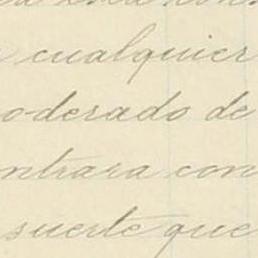 cualquier
oderado de
ntrara con
suerte que